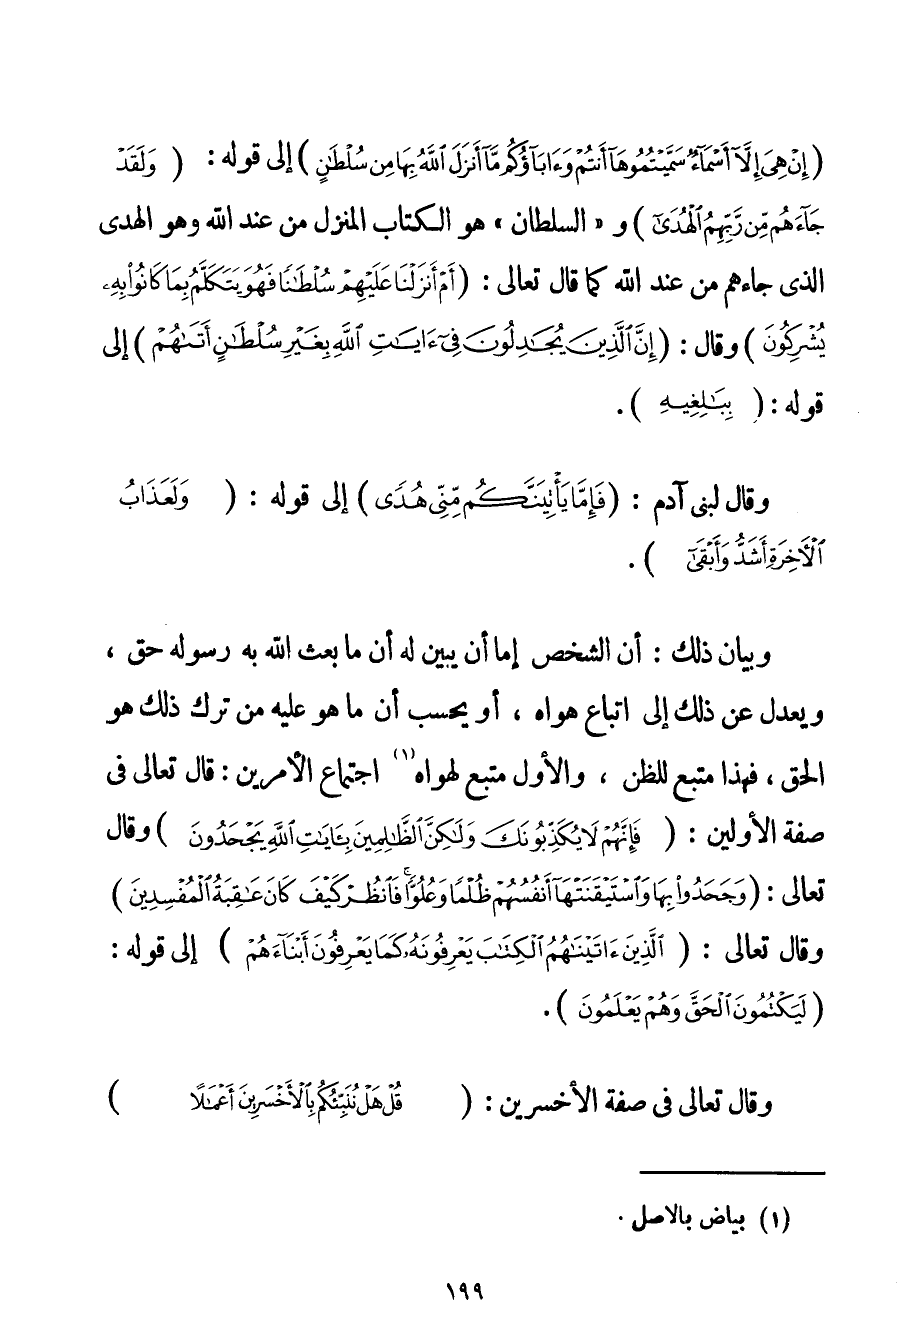 ( إِنْ هِىَ إِلَّآ أَسْمَآءٌ سَمَّيْتُمُوهَآ أَنتُمْ وَءَابَآؤُكُم مَّآ أَنزَلَ ٱللَّهُ بِهَا مِن سُلْطَٰنٍ ) إلى قوله : ( وَلَقَدْ
جَآءَهُم مِّن رَّبِّهِمُ ٱلْهُدَىٰٓ ) و « السلطان » هو الكتاب المنزل من عند الله وهو الهدى
الذى جاءهم من عند الله كما قال تعالى : ( أَمْ أَنزَلْنَا عَلَيْهِمْ سُلْطَٰنًا فَهُوَ يَتَكَلَّمُ بِمَا كَانُوا۟ بِهِۦ
يُشْرِكُونَ ) وقال : ( إِنَّ ٱلَّذِينَ يُجَٰدِلُونَ فِىٓ ءَايَٰتِ ٱللَّهِ بِغَيْرِ سُلْطَٰنٍ أَتَىٰهُمْ ) إلى
قوله : ( بِبَٰلِغِيهِ ) .
وقال لبنى آدم : ( فَإِمَّا يَأْتِيَنَّكُم مِّنِّى هُدًى ) إلى قوله : ( وَلَعَذَابُ
ٱلْأَخِرَةِ أَشَدُّ وَأَبْقَىٰٓ ) .
وبيان ذلك : أن الشخص إما أن يبين له أن ما بعث الله به رسوله حق ،
ويعدل عن ذلك إلى اتباع هواه ، أو يحسب أن ما هو عليه من ترك ذلك هو
الحق ، فهذا متبع للظن ، والأول متبع لهواه (١) اجتماع الأمرين : قال تعالى فى
صفة الأولين : ( فَإِنَّهُمْ لَا يُكَذِّبُونَكَ وَلَٰكِنَّ ٱلظَّٰلِمِينَ بِـَٔايَٰتِ ٱللَّهِ يَجْحَدُونَ ) وقال
تعالى : ( وَجَحَدُوا۟ بِهَا وَٱسْتَيْقَنَتْهَآ أَنفُسُهُمْ ظُلْمًا وَعُلُوًّا ۚ فَٱنظُرْ كَيْفَ كَانَ عَٰقِبَةُ ٱلْمُفْسِدِينَ )
وقال تعالى : ( ٱلَّذِينَ ءَاتَيْنَٰهُمُ ٱلْكِتَٰبَ يَعْرِفُونَهُۥ كَمَا يَعْرِفُونَ أَبْنَآءَهُمْ ) إلى قوله :
( لَيَكْتُمُونَ ٱلْحَقَّ وَهُمْ يَعْلَمُونَ ) .
وقال تعالى فى صفة الأخسرين : ( قُلْ هَلْ نُنَبِّئُكُم بِٱلْأَخْسَرِينَ أَعْمَٰلًا )
(١) بياض بالاصل .
١٩٩